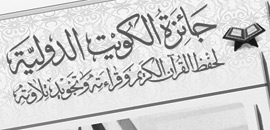 جائزة الكويت الدولية
لحفظ القرآن الكريم وقراءته وتجويد تلاوته